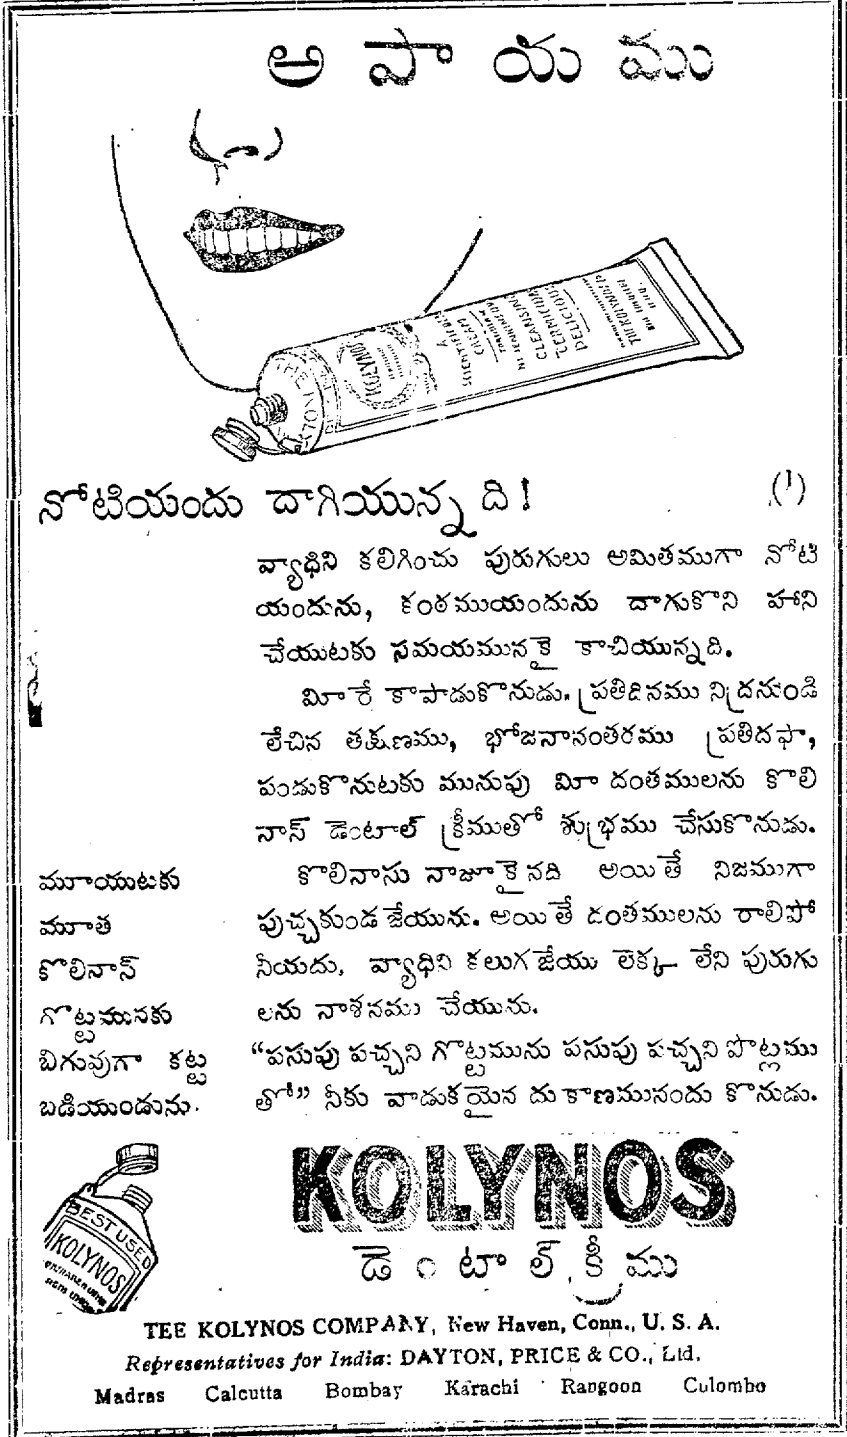 అ పా య ము
THE KOLYNOS
KOLYNOS
A
SCIENTIFIC
CREAM
CLEANSING
GERMICIDAL
DELICIOUS
THE KOLYNOS
నోటియందు దాగియున్నది! (1)
వ్యాధిని కలిగించు పురుగులు అమితముగా నోటి
యందును, కంఠముయందును దాగుకొని హాని
చేయుటకు సమయమునకై కాచియున్నది.
మీరే కాపాడుకొనుడు. ప్రతిదినము నిద్రనుండి
లేచిన తక్షణము, భోజనానంతరము ప్రతిదఫా,
పండుకొనుటకు మునుపు మీ దంతములను కొలి
నాస్ డెంటాల్ క్రీముతో శుభ్రము చేసుకొనుడు.
కొలినాసు నాజూకైనది అయితే నిజముగా
పుచ్చకుండ జేయును. అయితే దంతములను రాలిపో
నీయదు, వ్యాధిని కలుగజేయు లెక్క లేని పురుగు
లను నాశనము చేయును.
"పసుపు పచ్చని గొట్టమును పసుపు పచ్చని పొట్లము
తో" నీకు వాడుకయైన దుకాణమునందు కొనుడు.
మూయుటకు
మూత
కొలినాస్
గొట్టమునకు
బిగువుగా కట్ట
బడియుండును.
BEST USED
KOLYNOS
KOLYNOS
డెంటాల్ క్రీము
TEE KOLYNOS COMPANY, New Haven, Conn., U. S. A.
Representatives for India: DAYTON, PRICE & CO., Ltd.
Madras Calcutta Bombay Karachi Rangoon Culombo